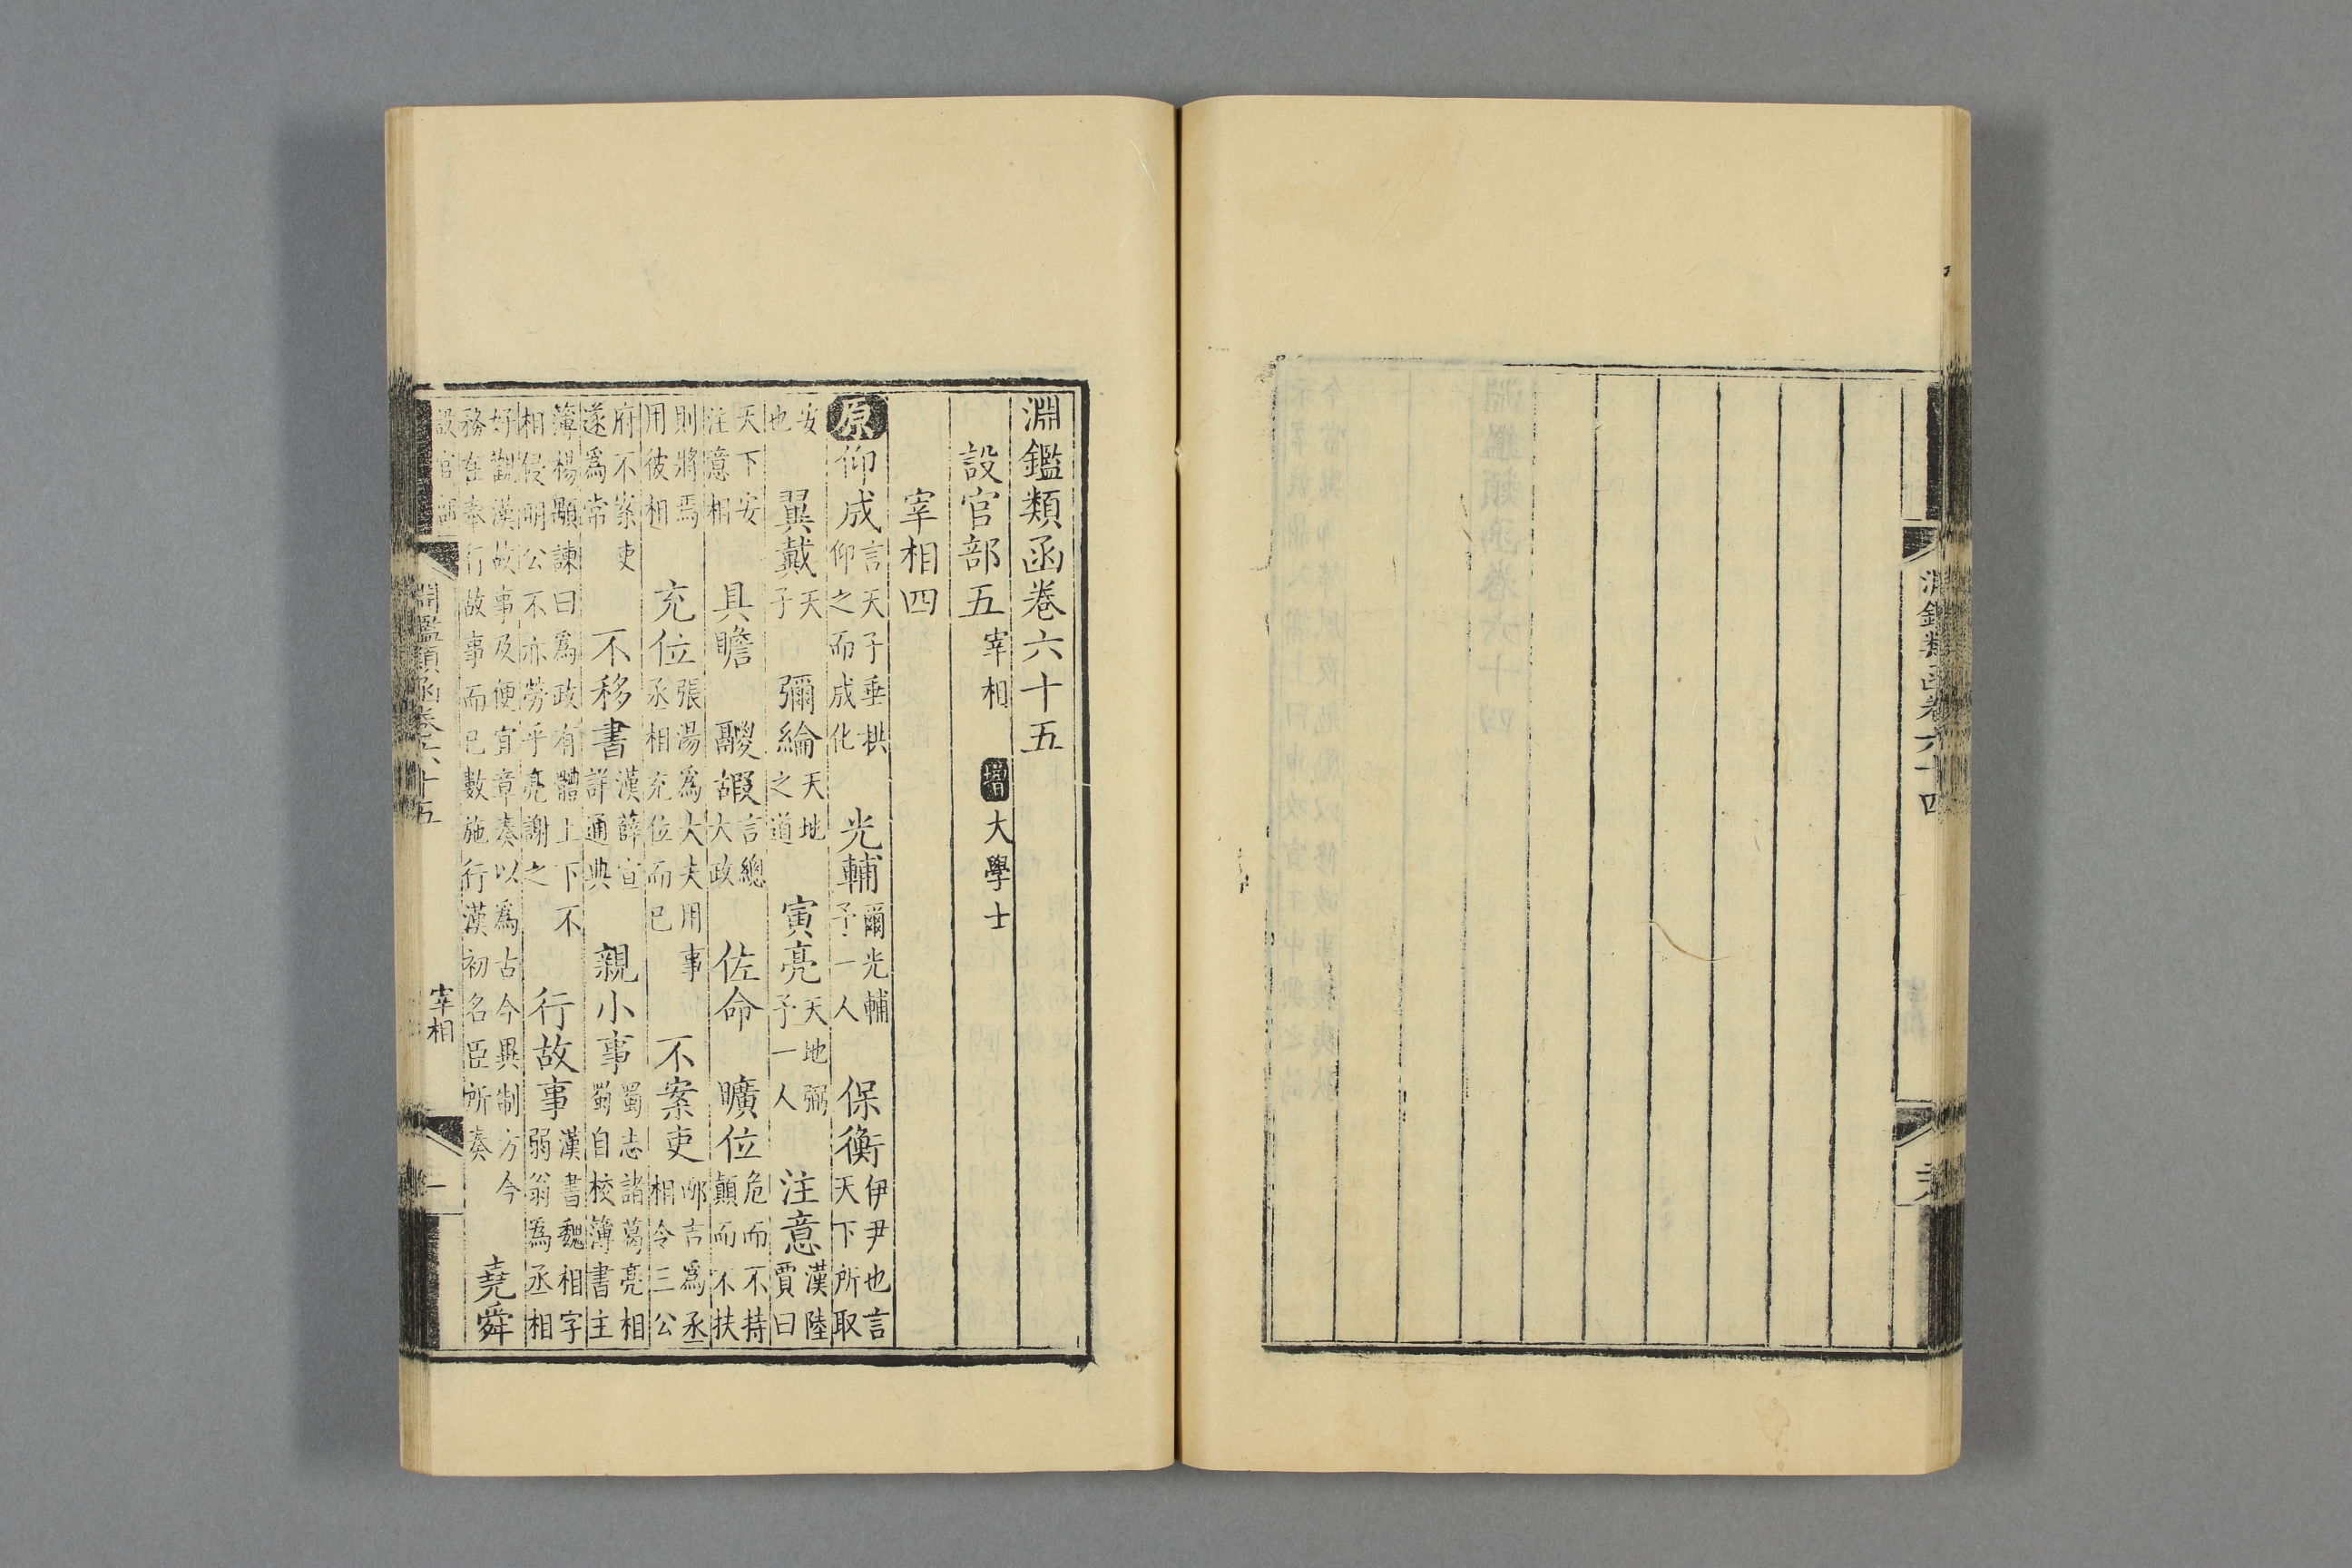 淵鑑類函卷六十四
淵鑑類函卷六十五
設官部五 宰相 增 大學士
宰相四
原 仰成 言天子垂拱仰之而成化 光輔 爾光輔予一人 保衡 伊尹也言天下所取
安也 翼戴 天子 彌綸 天地之道 寅亮 天地弼予一人 注意 漢陸賈曰
天下安注意相 具瞻 鬷嘏 言總大政 佐命 曠位 危而不持顛而不扶
則將焉用彼相 充位 張湯爲大夫用事丞相充位而已 不案吏 邴吉爲丞相令三公
府不案吏遂爲常 不移書 漢薛宣詳通典 親小事 蜀志諸葛亮相蜀自校簿書主
簿楊顒諫曰爲政有體上下不相侵明公不亦勞乎亮謝之 行故事 漢書魏相字弱翁爲丞相
好觀漢故事及便宜章奏以爲古今異制方今務在奉行故事而已數施行漢初名臣所奏 堯舜
設官部 淵鑑類函卷六十五 宰相 一